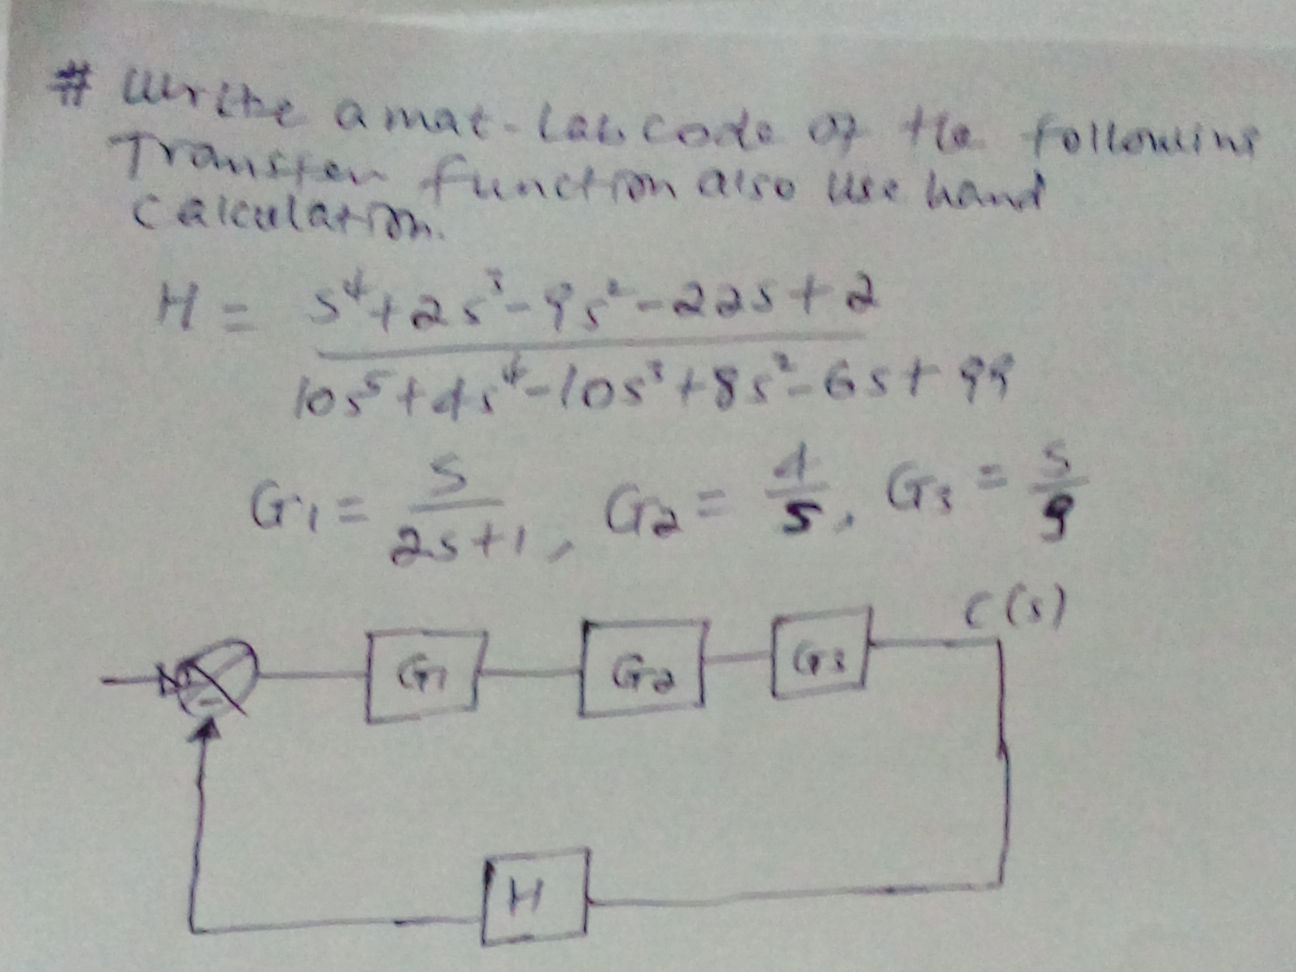 # Write a mat-lab code of the following
Transfer function also use hand
calculation.
H = s⁴+2s³-9s²-22s+2 / 10s⁵+4s⁴-10s³+8s²-6s+99
G₁ = s / 2s+1, G₂ = 4 / 5, G₃ = s / 9
C(s)
G₁ G₂ G₃
-
H